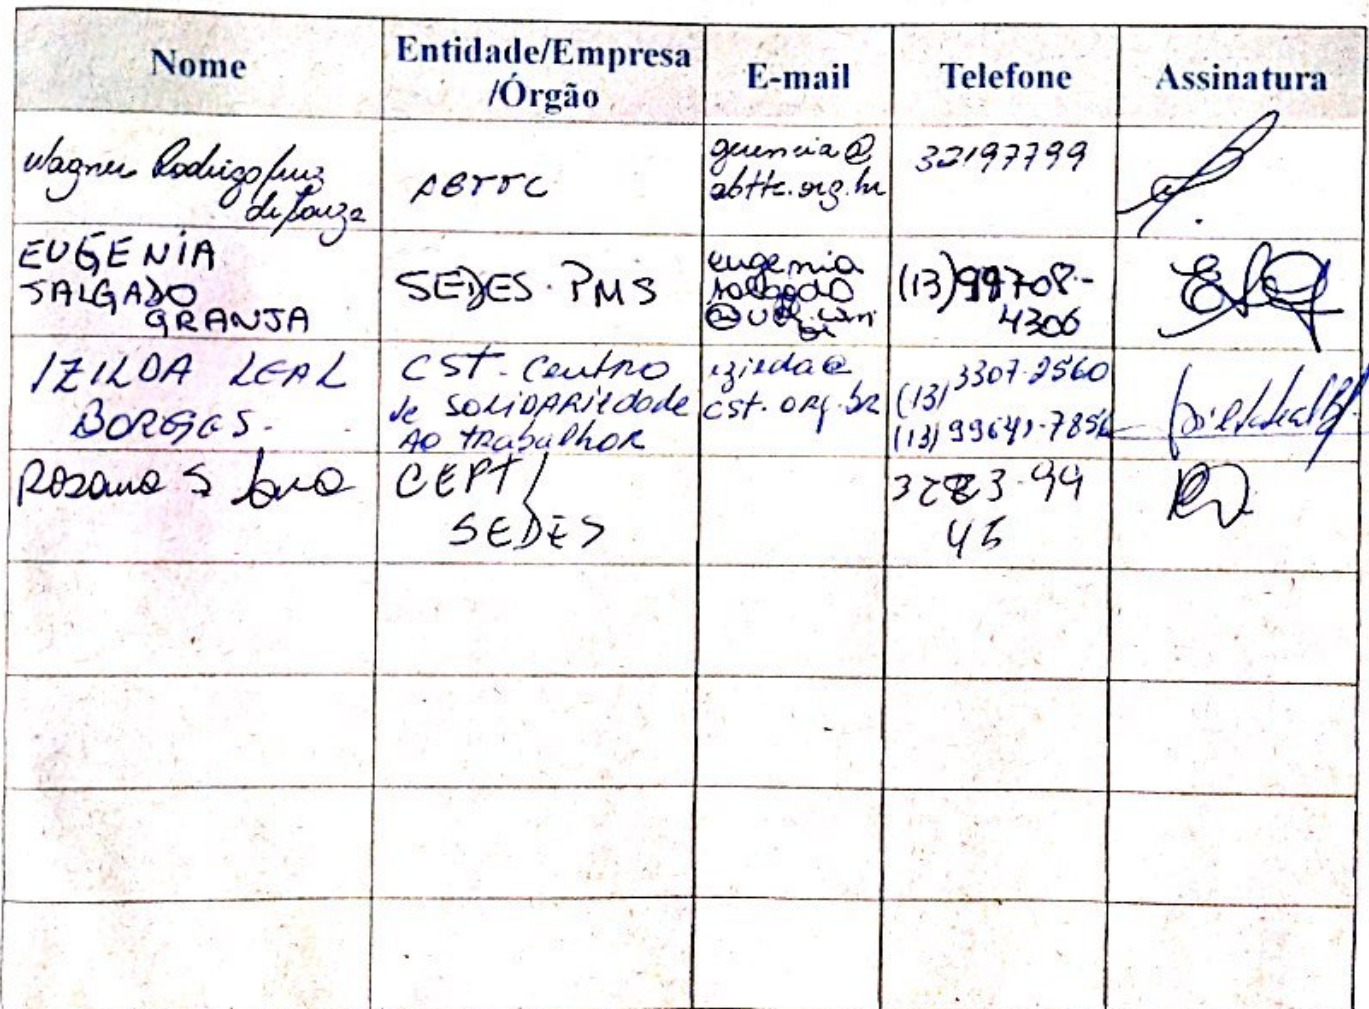 Nome
Entidade/Empresa
/Órgão
E-mail
Telefone
Assinatura
Wagner Rodrigo Cruz
de Souza
ABTTC
gerencia@
abttc.org.br
32197799
EUGENIA
SALGADO
GRANJA
SEDES. PMS
eugenia
salgado
(13)99708-
4306
IZILDA LEAL
BORGES.
CST - Centro
de SOLIDARIEDADE
AO TRABALHOR
CST.ORG.BR
3307-2560
(13)
(13) 99641-7856
Rosana S
CEPT/
SEDES
45